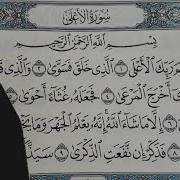 سُورَةُ الْأَعْلَى
بِسْمِ اللَّهِ الرَّحْمَٰنِ الرَّحِيمِ
رَبِّكَ الْأَعْلَى ١ الَّذِي خَلَقَ فَسَوَّىٰ ٢ وَالَّذِي
أَخْرَجَ الْمَرْعَىٰ ٤ فَجَعَلَهُ غُثَاءً أَحْوَىٰ ٥
إِلَّا مَا شَاءَ اللَّهُ إِنَّهُ يَعْلَمُ الْجَهْرَ وَمَا يَخْفَىٰ
فَذَكِّرْ إِن نَّفَعَتِ الذِّكْرَىٰ ٩